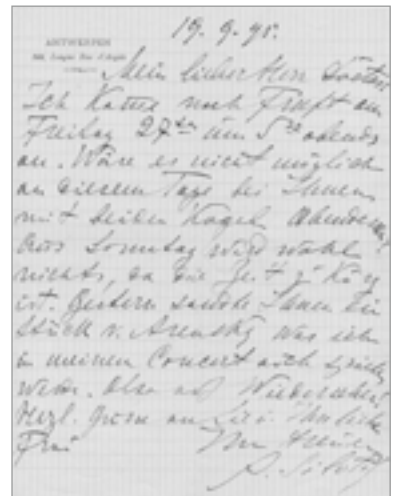 19. 9. 95.
ANTWERPEN
Mein lieber Herr Doctor
Ich komme nach Frcft am
Freitag 27ten um 5 30 abends
an. Wäre es nicht möglich
an diesem Tage bei Ihnen
mit beiden
Aus Sonntag wird wohl
nichts, da die Zeit zu kurz
ist. Gestern sandte Ihnen ein
Stück v. Arensky was ich
in meinen Concert auch spielen
werde. Also auf Wiedersehen
Herzl. an Sie u. Ihre liebe
Frau
Ihr